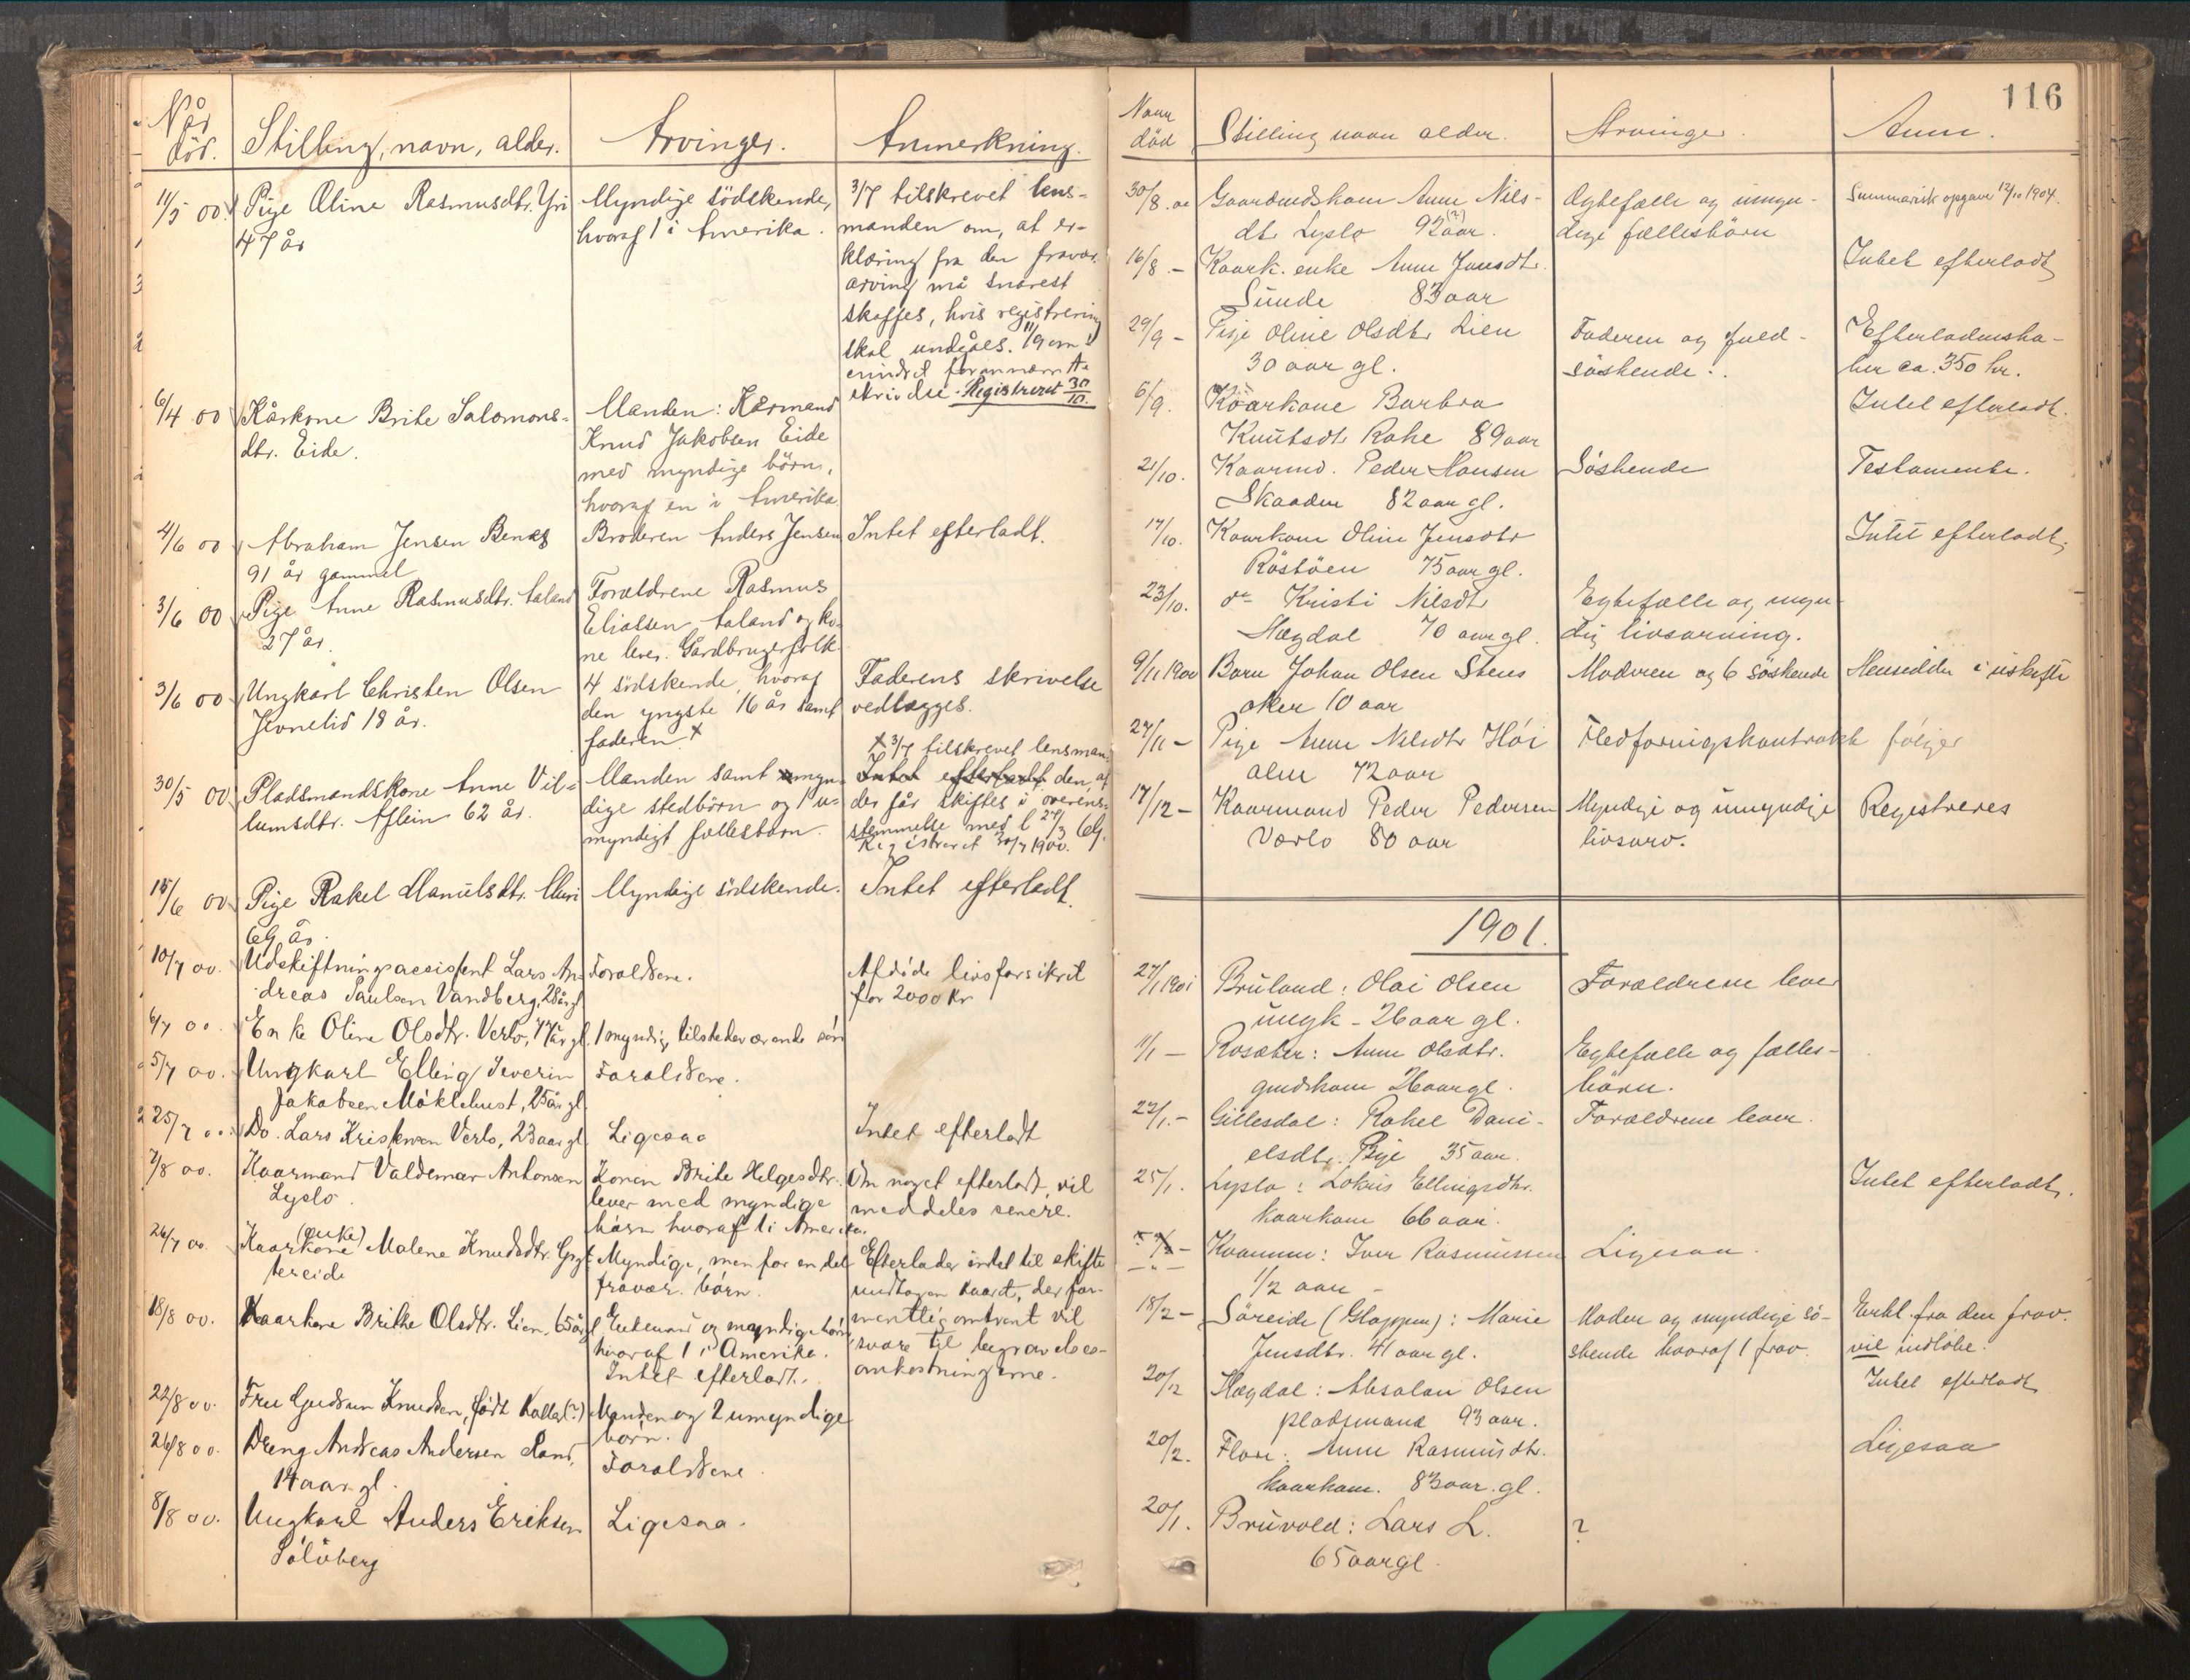 Når
död.
Stilling, navn, alder.
Arvinger.
Anmerkning.
11/5 00.
Pige Oline Rasmusdtr. Yri
47 år
Myndige södskende,
hvoraf 1 i Amerika.
3/7 tilskrevet lens-
manden om, at er-
klæring fra den fravær.
arving må snarest
skaffes, hvis registrering
skal undgåes. 11/9 om
Registreret 30/10.
6/4 00
Kårkone Brite Salomons-
dtr. Eide.
Manden: Kårmand
Knud Jakobsen Eide
med myndige börn,
hvoraf en i Amerika
4/6 00
Abraham Jensen Benes
91 år gammel
Broderen Anders Jensen
Intet efterladt.
3/6 00
Pige Anne Rasmusdtr. Aaland
27 år.
Forældrene Rasmus
Eliassen Aaland og ko-
ne lever. Gårdbrugerfolk
3/6 00
Ungkarl Christen Olsen
Jevnelid 18 år.
4 södskende, hvoraf
den yngste 16 år samt
faderen.
Faderens skrivelse
vedlægges.
30/5 00
Pladsmandskone Anne Vil-
lumsdtr. Aflein 62 år.
Manden samt myn-
dige stedbörn og 1 u-
myndigt fællesbarn.
x 3/7 tilskrevet lensman
Intet efterladt den, at
der får skiftes i overens-
stemmelse med l 29/3 69.
Registreret 30/7 1900.
15/6 00
Pige Rakel Danielsdtr. Muri
69 år.
Myndige södskende.
Intet efterladt.
10/7 00.
Udskiftningsassistent Lars An-
dreas Paulsen Vandberg, 28 år gl
Forældrene.
Afdöde livsforsikret
for 2000 Kr
6/7 00.
Enke Oline Olsdtr. Verlo, 77 år gl.
1 myndig tilstedeværende sön
5/7 00.
Ungkarl Elling Severin
Jakobsen Möklebust, 25 år gl
Forældrene.
25/7 00.
Do. Lars Kristensen Verlo, 23 aar gl.
Ligesaa
Intet efterladt
7/8 00.
Kaarmand Valdemar Antonsen
Lyslo.
Konen Brite Helgesdtr.
lever med myndige
börn hvoraf 1 i Amerika.
Om noget efterladt, vil
meddeles senere.
26/7 00.
(enke)
Kaarkone Malene Knudsdtr. Gryt-
tereide
Myndige, men for en del
fravær. börn.
Efterlader intet til skifte
undtagen kaaret, der for-
mentlig omtrent vil
svare til begravelses-
omkostningerne.
18/8 00.
Kaarkone Brithe Olsdtr. Lien, 65 år gl
Enkemand og myndige börn
hvoraf 1 i Amerika.
Intet efterladt.
22/8 00.
Fru Gudrun Knudsen, född Kalla(?)
Manden og 2 umyndige
börn.
26/8 00.
Dreng Andreas Andersen Sand,
14 aar gl.
Forældrene
8/8 00.
Ungkarl Anders Eriksen
Sölvberg
Ligesaa.
116
Naar
död
Stilling navn alder.
Arvinger.
Anm.
30/8. 00
Gaardmdskone Anne Nils-
dtr Lyslo 92 aar. (?)
Ægtefælle og umyn-
dige fællesbörn
Summarisk opgave 12/10 1904.
16/8. -
Kaark. enke Anne Jensdtr.
Sunde 83 aar
Intet efterladt
29/9 -
Pige Oline Olsdtr Lien
30 aar gl.
Faderen og fuld-
söskende.
Efterladenska-
ber ca. 350 kr.
5/9.
Kaarkone Barbra
Knutsdtr Rake 89 aar
Intet efterladt.
21/10.
Kaarmd. Peder Hansen
Skaaden 82 aar gl.
Söskende
Testamente.
17/10.
Kaarkone Oline Jensdtr
Röstöen 75 aar gl.
Intet efterladt.
23/10.
do Kristi Nilsdtr
Hægdal 70 aar gl.
Egtefælle og myn-
dig livsarving.
9/11 1900
Barn Johan Olsen Stens
aker 10 aar
Moderen og 6 söskende
Hensidder i uskifte
27/11 -
Pige Anne Nilsdtr Höi
alm 72 aar
Fledforingskontrakt följer
17/12 -
Kaarmand Peder Pedersen
Værlo 80 aar
Myndige og umyndige
livsarv.
Registreres
1901.
27/1 1901
Bruland: Olai Olsen
ungk - 26 aar gl.
Forældrene lever
11/1 -
Rosæter: Anne Olsdtr.
gmdskone 26 aar gl.
Egtefælle og fælles-
börn.
22/1. -
Gillesdal: Rakel Dani-
elsdtr. Pige 35 aar.
Forældrene lever.
25/1.
Lyslo: Lokris Ellingsdtr.
kaarkone 66 aar.
Intet efterladt.
Kvamme: Iver Rasmussen
1/2 aar -
Ligesaa.
18/2 -
Söreide (Gloppen): Marie
Jensdtr. 41 aar gl.
Moder og myndige sö-
skende hvoraf 1 frav.
Erkl. fra den frav.
vil indlöbe.
20/12
Hægdal: Absalon Olsen
pladsmand 93 aar.
Intet efterladt
20/2.
Flore: Anne Rasmusdtr.
kaarkone. 83 aar. gl.
Ligesaa
20/1.
Bruvold: Lars L.
65 aar gl.
?